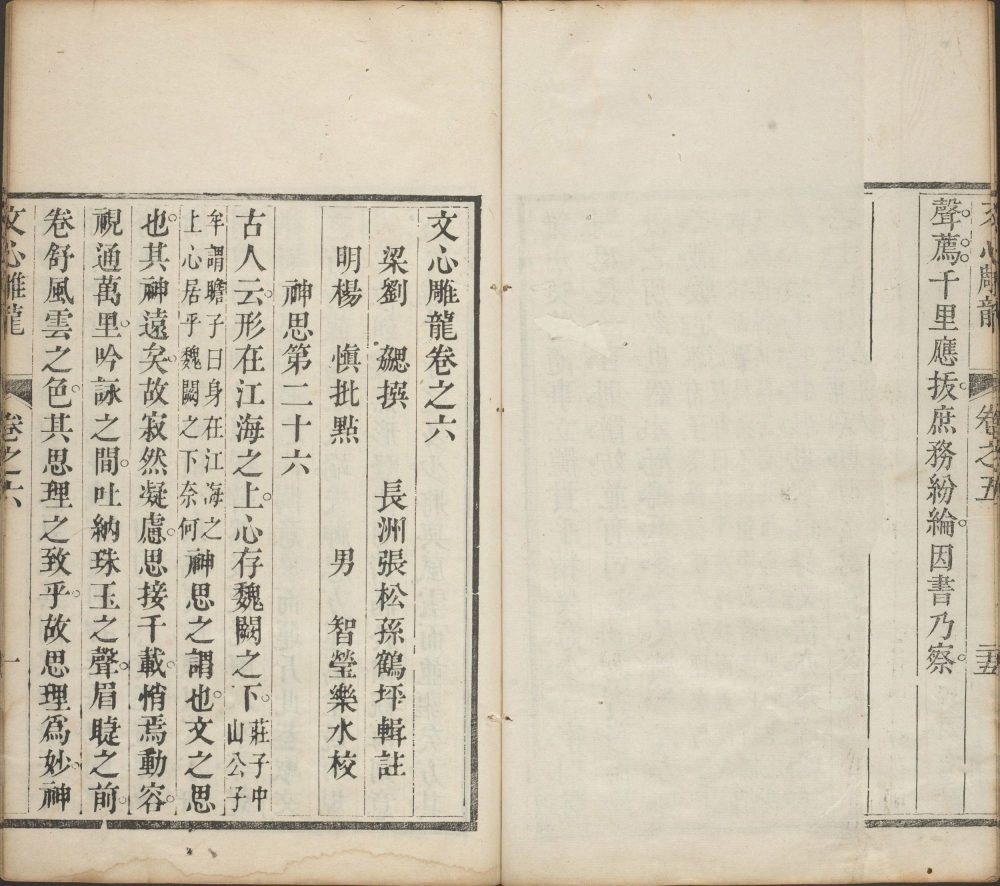 文心雕龍 卷之五 三五
聲薦。千里應拔。庶務紛綸。因書乃察。
文心雕龍卷之六
梁劉 勰撰 長洲張松孫鶴坪輯註
明楊 慎批點 男 智瑩樂水校
神思第二十六
古人云。形在江海之上。心存魏闕之下。莊子中山公子
牟謂瞻子曰身在江海之上心居乎魏闕之下奈何神思之謂也。文之思
也。其神遠矣。故寂然凝慮。思接千載。悄焉動容。
視通萬里。吟詠之間。吐納珠玉之聲。眉睫之前。
卷舒風雲之色。其思理之致乎。故思理爲妙。神
文心雕龍 卷之六 一